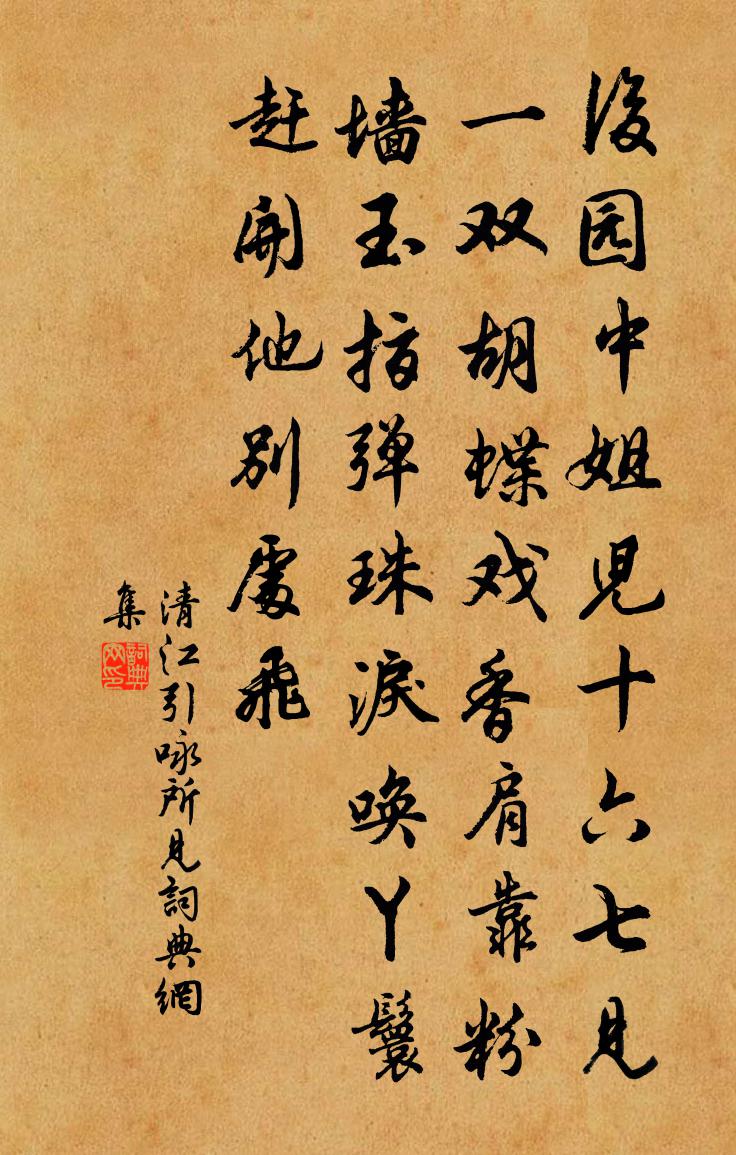 後园中姐児十六七見
一双胡蝶戏香肩靠粉
墙玉指弹珠淚唤丫鬟
赶開他别處飛
清江引咏所見詞典網
集
詞典
网印